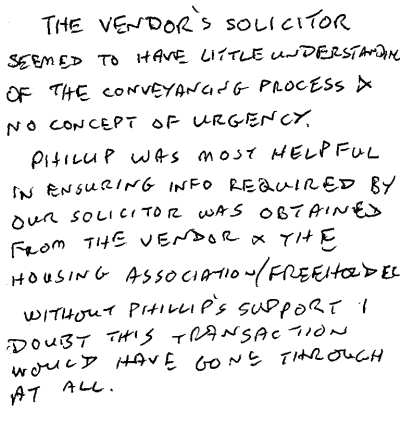 THE VENDOR'S SOLICITOR
SEEMED TO HAVE LITTLE UNDERSTANDIN
OF THE CONVEYANCING PROCESS &
NO CONCEPT OF URGENCY.
PHILLIP WAS MOST HELPFUL
IN ENSURING INFO REQUIRED BY
OUR SOLICITOR WAS OBTAINED
FROM THE VENDOR & THE
HOUSING ASSOCIATION/FREEHOLDER
WITHOUT PHILLIP'S SUPPORT I
DOUBT THIS TRANSACTION
WOULD HAVE GONE THROUGH
AT ALL.